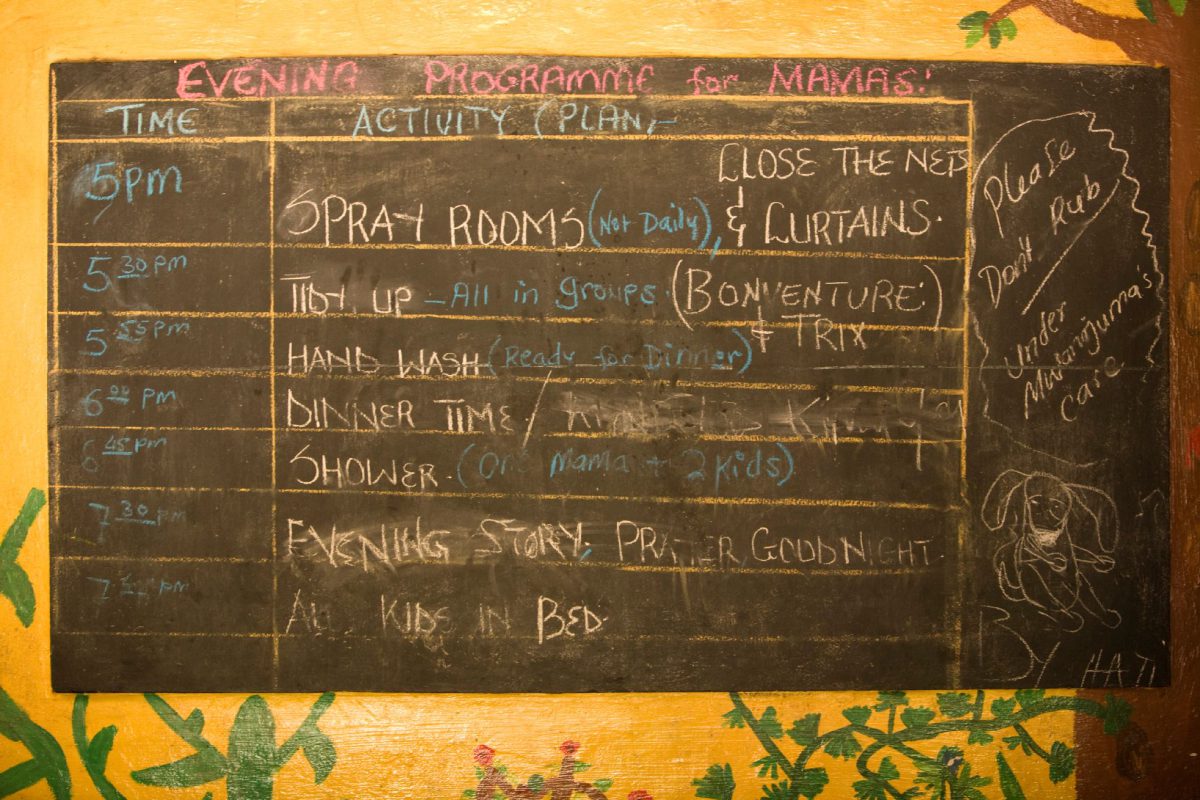 EVENING PROGRAMME for MAMAS:
TIME ACTIVITY (PLAN,-
CLOSE THE NETS
5pm SPRAY ROOMS (Not Daily), & CURTAINS.
5 30 pm TIDY UP - All in groups. (BONVENTURE.)
& TRIX
5 55 pm HAND WASH (Ready for Dinner)
6 00 pm DINNER TIME /
6 45 pm SHOWER. (One Mama + 2 Kids)
7 30 pm EVENING STORY, PRAYER, GOODNIGHT.
7 pm ALL KIDS IN BED.
Please
Don't Rub
Under
Mwanjuma's
care
By HATI